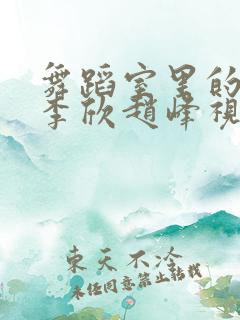 舞蹈室里的
李欣赵峰视
東天不冷
未经同意禁止转载